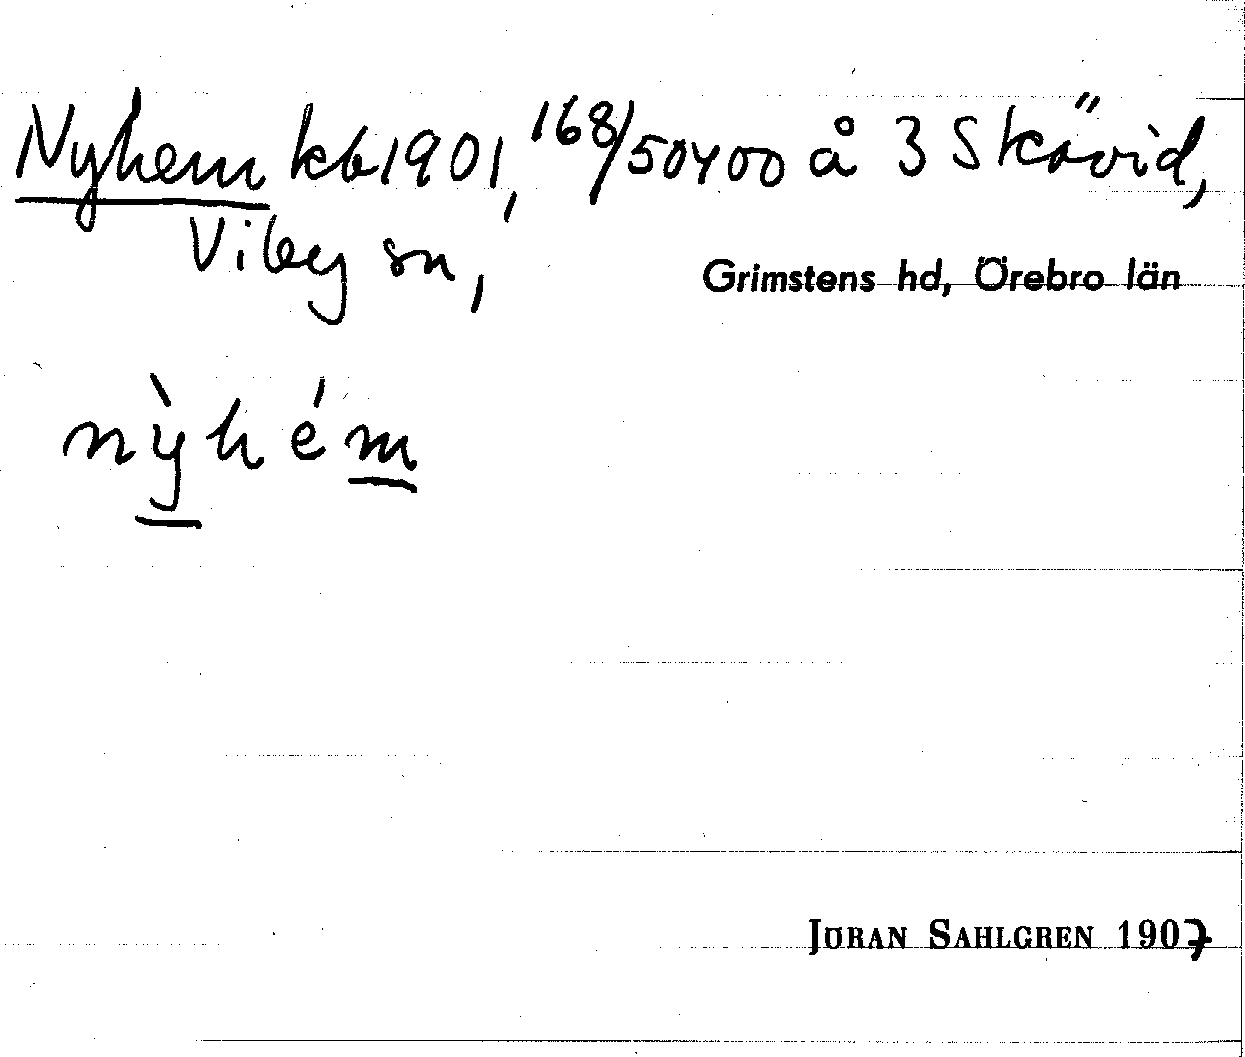 Nyhem kb 1901, 168/50400 å 3 Skövid,
Viby sn,
Grimstens hd, Örebro län
nỳhém
JÖRAN SAHLGREN 1907